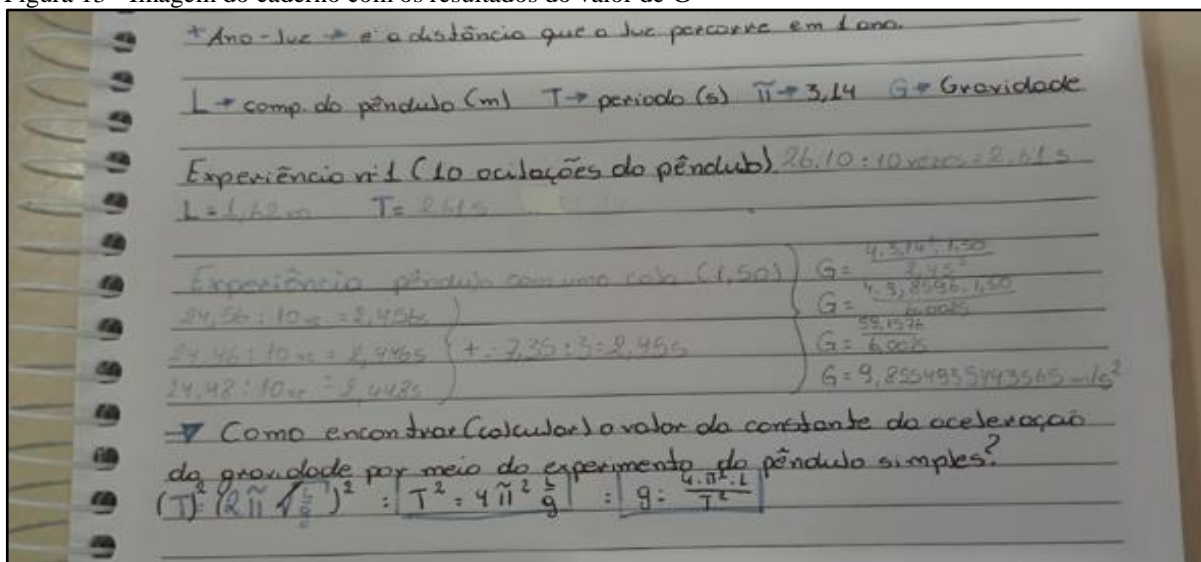 Figura 13 - Imagem do caderno com os resultados do valor de G
* Ano-luz → é a distância que a luz percorre em 1 ano.
L → comp. do pêndulo (m) T → periodo (s) π → 3,14 G → Gravidade
Experiência nº 1 (10 ocilações do pêndulo) 26,10 : 10 vezes = 2,61 s
L = 1,62 m T = 2,61 s
Experiência pêndulo com uma (1,50)
24,56 : 10 = 2,456s
24,46 : 10 = 2,446s
24,48 : 10 = 2,448s
7,35 : 3 = 2,45s
G = 4.3,14².1,50 / 2,45²
G = 4.9,8596.1,50 / 6,0025
G = 59,1576 / 6,0025
G = 9,8554935443565 m/s²
→ Como encontrar (calcular) o valor da constante da aceleração
da gravidade por meio do experimento do pêndulo simples?
(T)² = (2π √L/g)² : T² = 4π² L/g : g = 4.π².L / T²